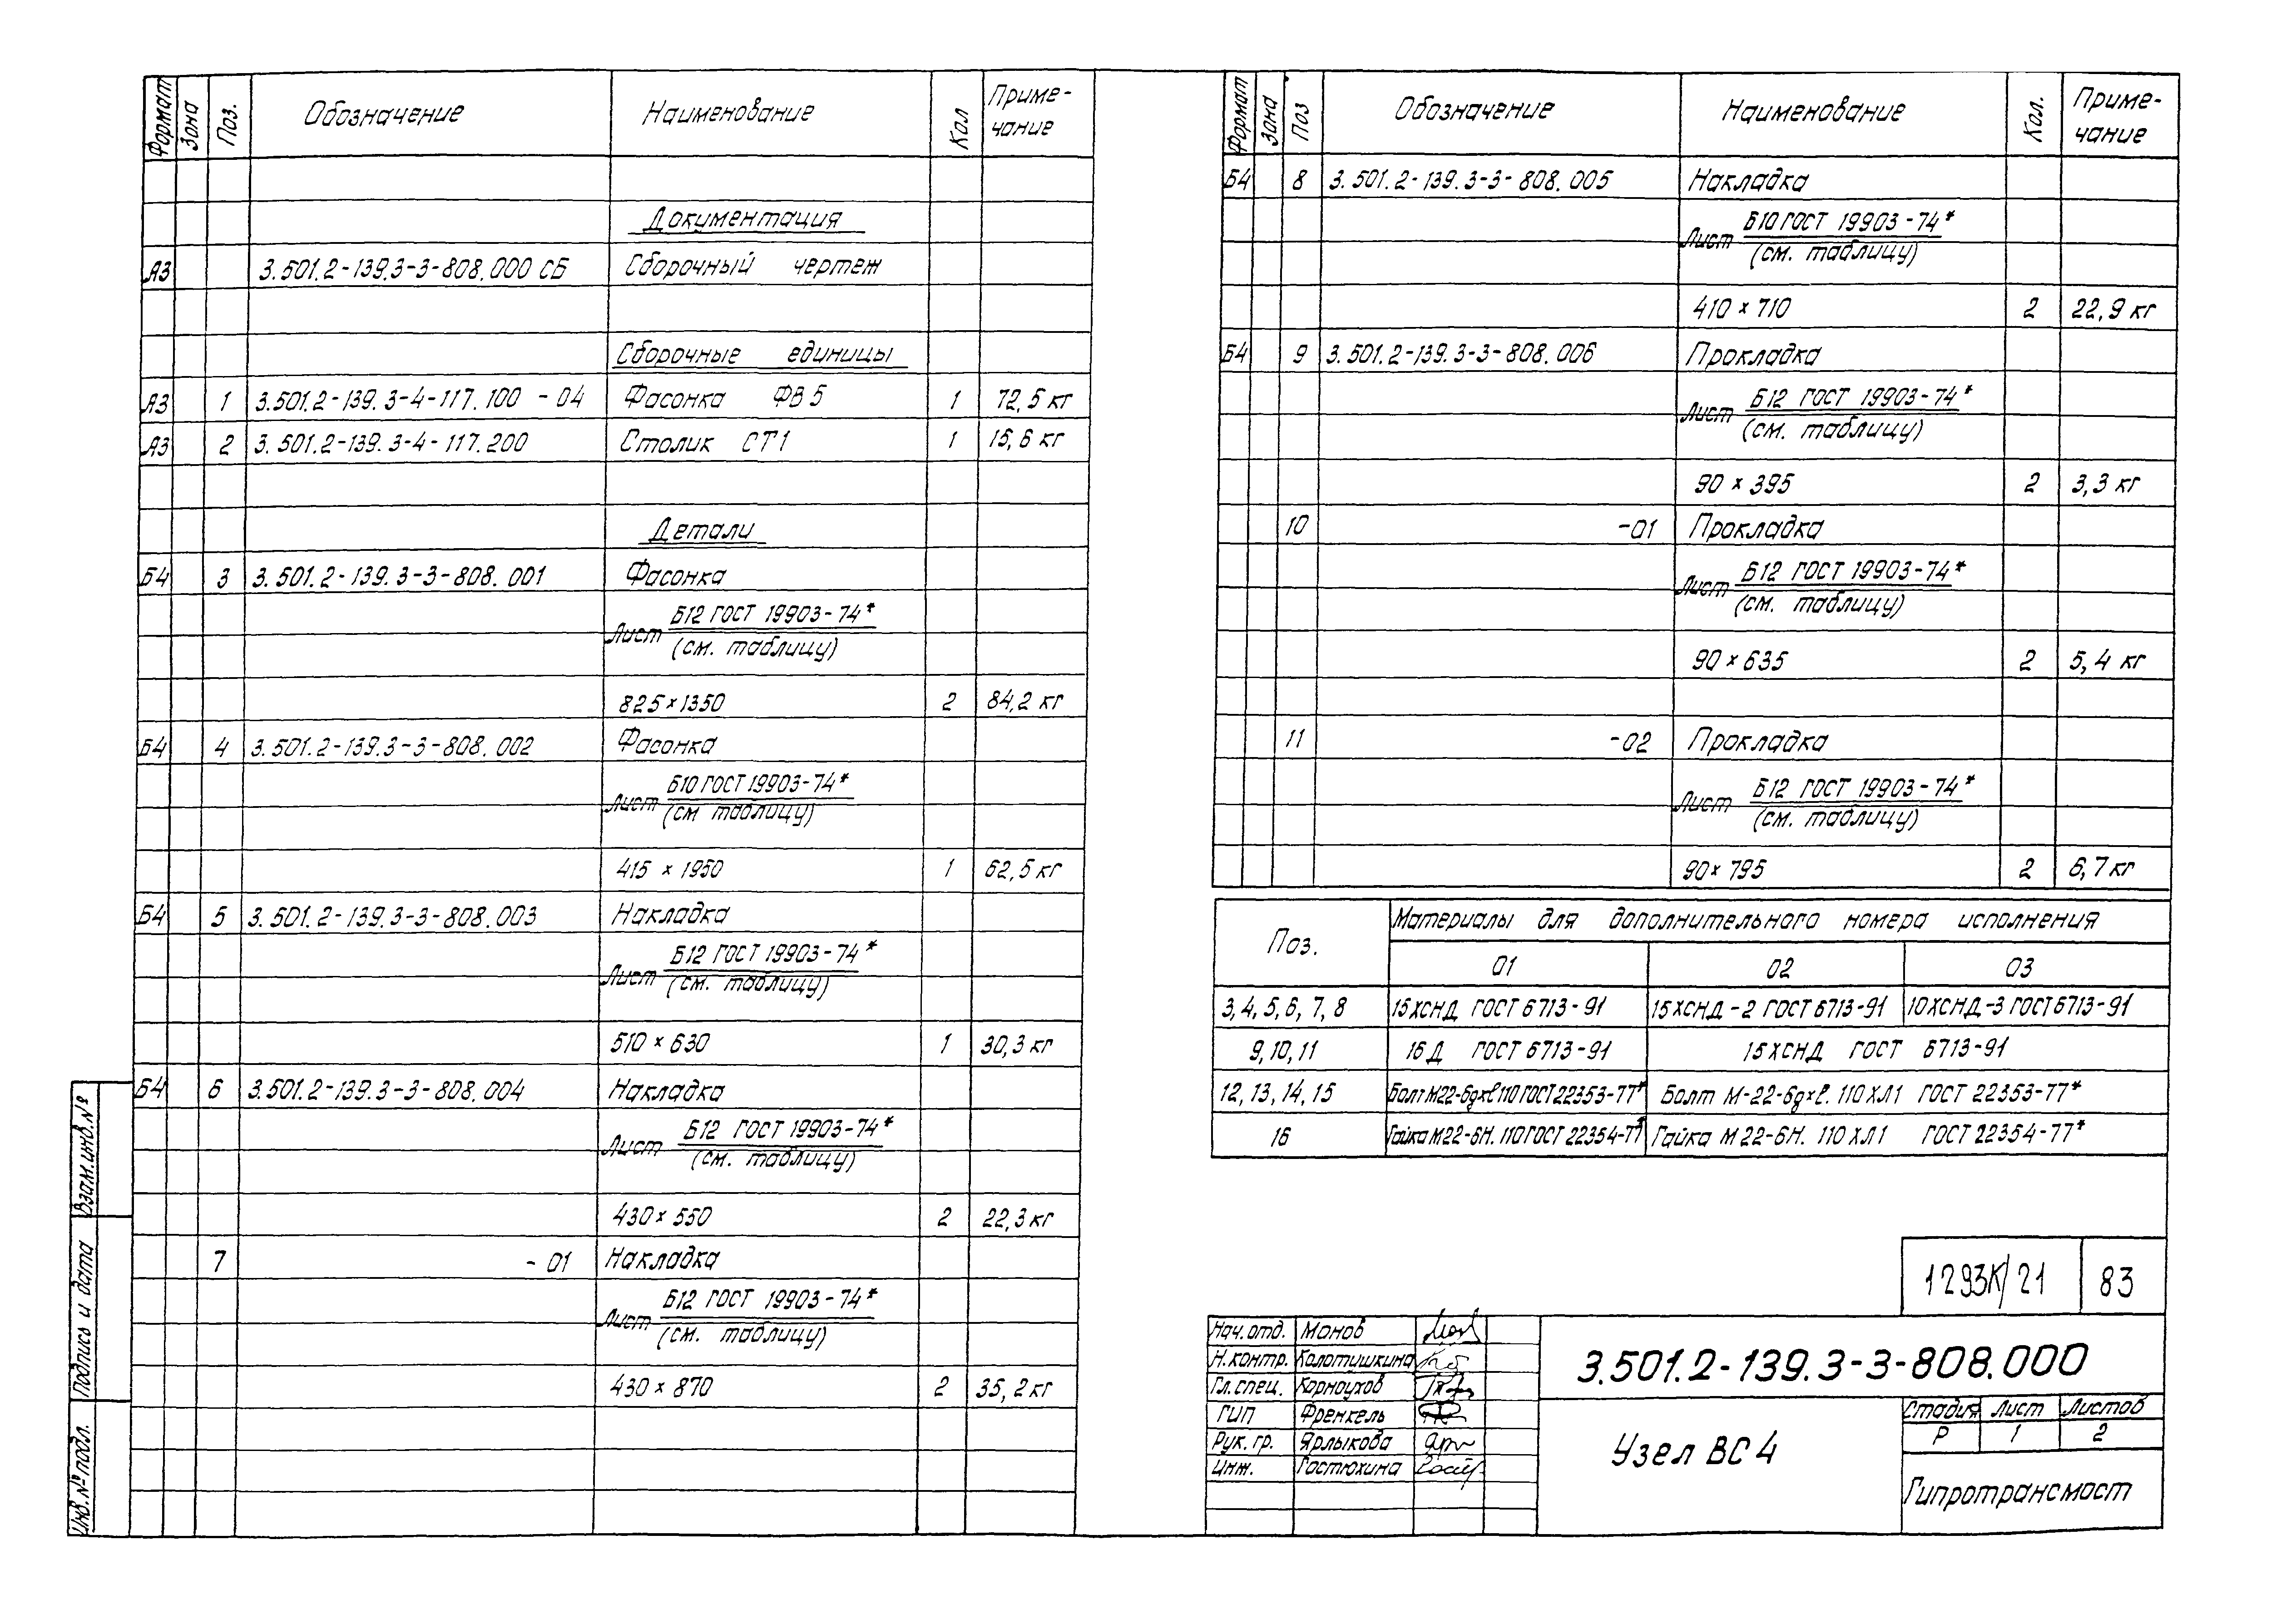 Формат Зона Поз. Обозначение Наименование Кол Приме-чание
Документация
А3 3.501.2-139.3-3-808.000 СБ Сборочный чертеж
Сборочные единицы
А3 1 3.501.2-139.3-4-117.100 -04 Фасонка ФВ5 1 72,5 кг
А3 2 3.501.2-139.3-4-117.200 Столик СТ1 1 15,6 кг
Детали
Б4 3 3.501.2-139.3-3-808.001 Фасонка
Лист Б12 ГОСТ 19903-74*
(см. таблицу)
825×1350 2 84,2 кг
Б4 4 3.501.2-139.3-3-808.002 Фасонка
Лист Б10 ГОСТ 19903-74*
(см таблицу)
415 × 1950 1 62,5 кг
Б4 5 3.501.2-139.3-3-808.003 Накладка
Лист Б12 ГОСТ 19903-74*
(см. таблицу)
510 × 630 1 30,3 кг
Б4 6 3.501.2-139.3-3-808.004 Накладка
Лист Б12 ГОСТ 19903-74*
(см. таблицу)
430 × 550 2 22,3 кг
7 -01 Накладка
Лист Б12 ГОСТ 19903-74*
(см. таблицу)
430 × 870 2 35,2 кг
Формат Зона Поз Обозначение Наименование Кол. Приме-чание
Б4 8 3.501.2-139.3-3-808.005 Накладка
Лист Б10 ГОСТ 19903-74*
(см. таблицу)
410 × 710 2 22,9 кг
Б4 9 3.501.2-139.3-3-808.006 Прокладка
Лист Б12 ГОСТ 19903-74*
(см. таблицу)
90 × 395 2 3,3 кг
10 -01 Прокладка
Лист Б12 ГОСТ 19903-74*
(см. таблицу)
90 × 635 2 5,4 кг
11 -02 Прокладка
Лист Б12 ГОСТ 19903-74*
(см. таблицу)
90× 795 2 6,7 кг
Поз. Материалы для дополнительного номера исполнения
01 02 03
3, 4, 5, 6, 7, 8 15ХСНД ГОСТ 6713-91 15ХСНД-2 ГОСТ 6713-91 10ХСНД-3 ГОСТ 6713-91
9, 10, 11 16Д ГОСТ 6713-91 15ХСНД ГОСТ 6713-91
12, 13, 14, 15 Болт М22-6g×ℓ.110 ГОСТ 22353-77* Болт М-22-6g×ℓ. 110 ХЛ1 ГОСТ 22353-77*
16 Гайка М22-6Н. 110 ГОСТ 22354-77* Гайка М22-6Н. 110 ХЛ1 ГОСТ 22354-77*
1293К/21 83
Нач. отд. Монов
Н.контр. Колотушкина
Гл. спец. Корноухов
ГИП Френкель
Рук. гр. Ярлыкова
Инж. Гостюхина
3.501.2-139.3-3-808.000
Узел ВС4
Стадия Лист Листов
Р 1 2
Гипротрансмост
Взам. инв. №
Подпись и дата
Инв. № подл.